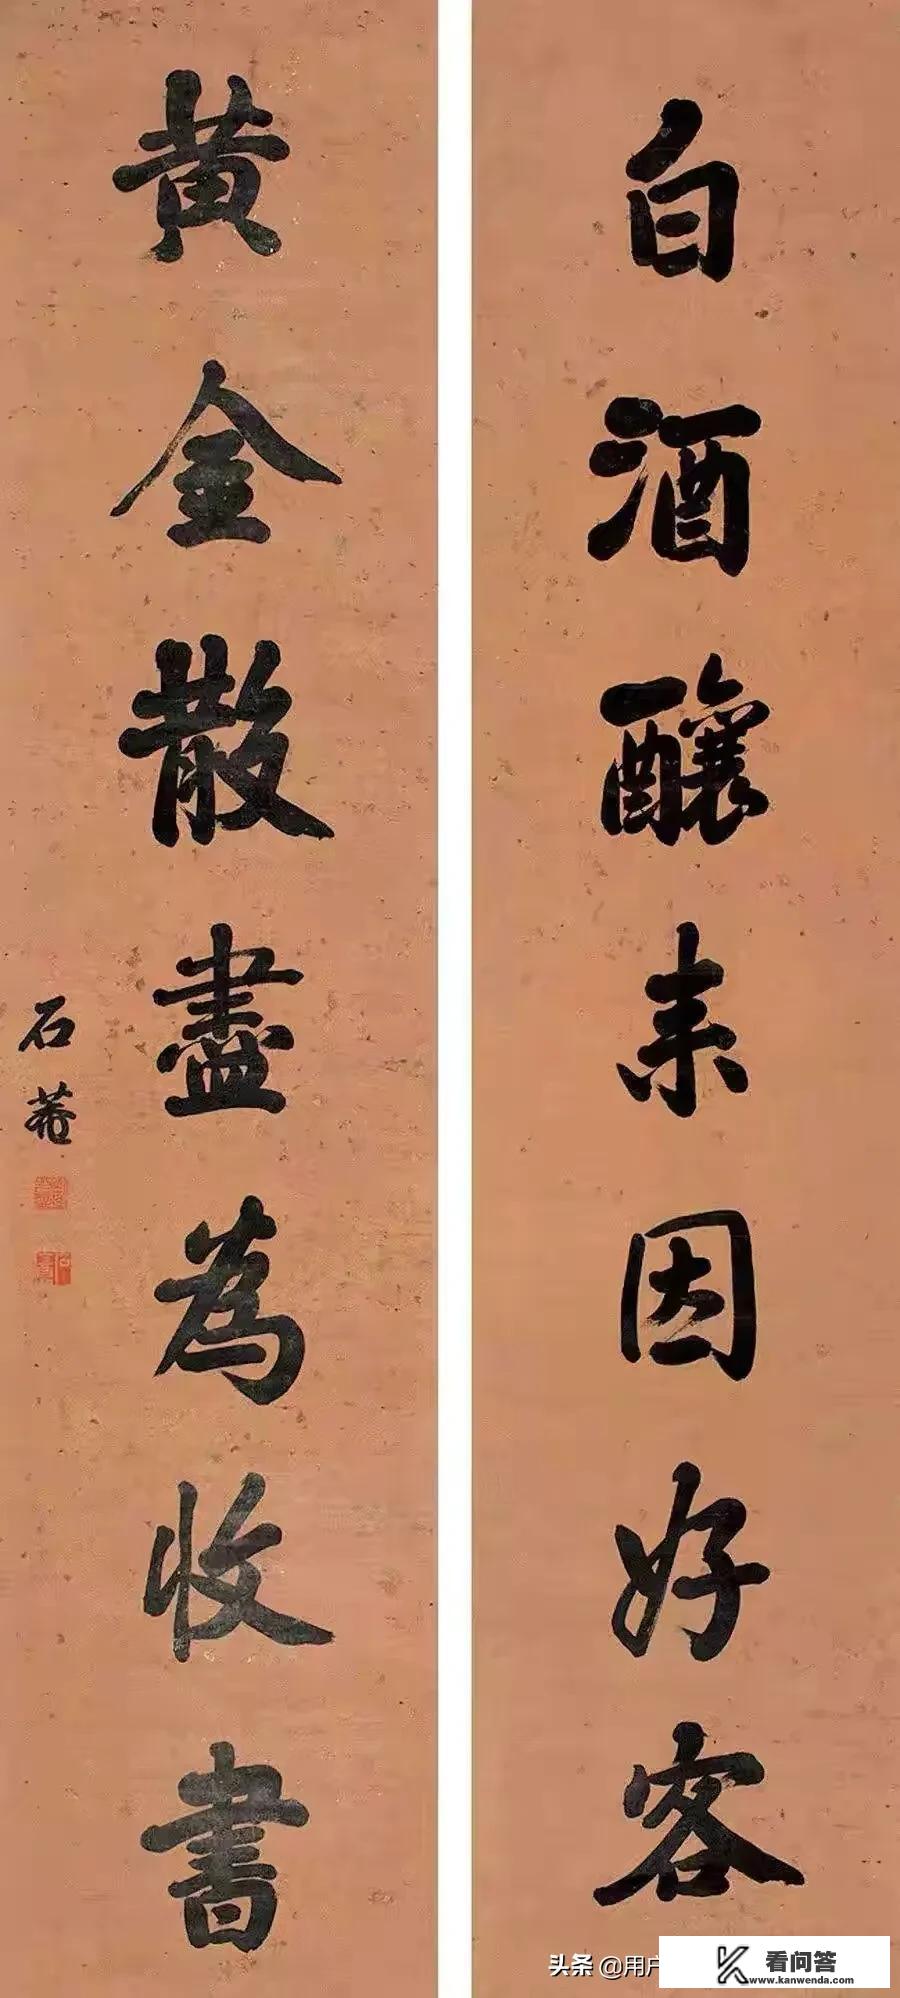 白酒釀来因好客
黄金散盡為收書
石菴
头条 @用户
看问答
www.kanwenda.com